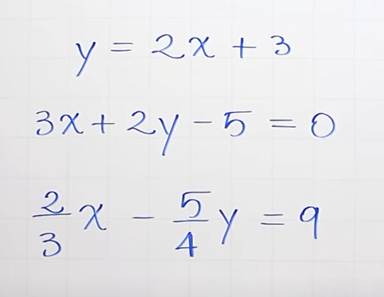 y = 2x + 3
3x + 2y - 5 = 0
2/3 x - 5/4 y = 9